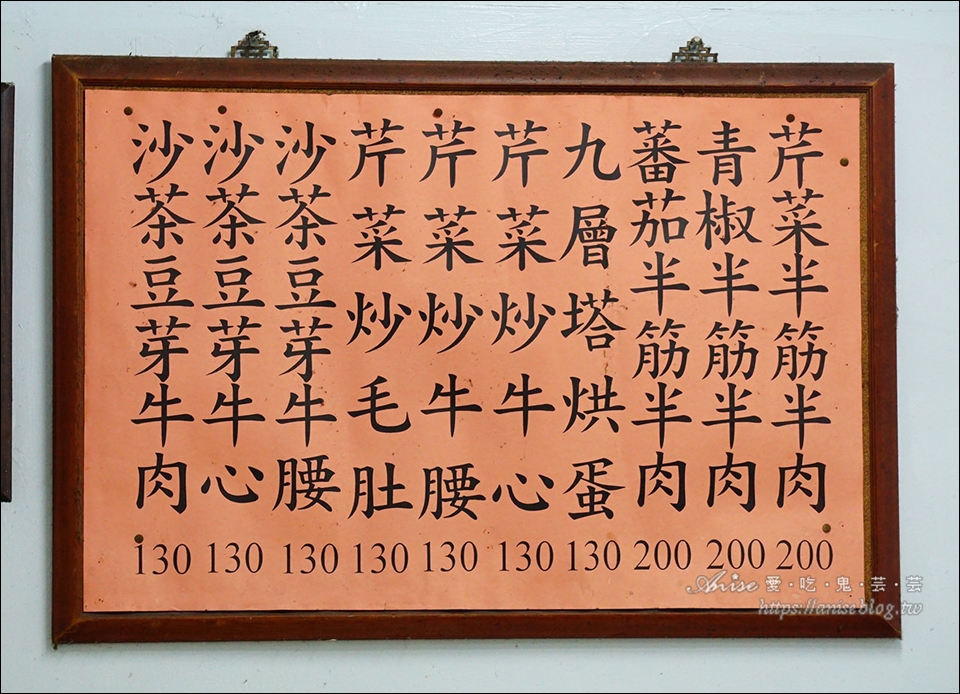 芹菜半筋半肉 200
青椒半筋半肉 200
蕃茄半筋半肉 200
九層塔烘蛋 130
芹菜炒牛心 130
芹菜炒牛腰 130
芹菜炒毛肚 130
沙茶豆芽牛腰 130
沙茶豆芽牛心 130
沙茶豆芽牛肉 130
Anise 愛·吃·鬼·芸·芸
https://aniseblog.tw